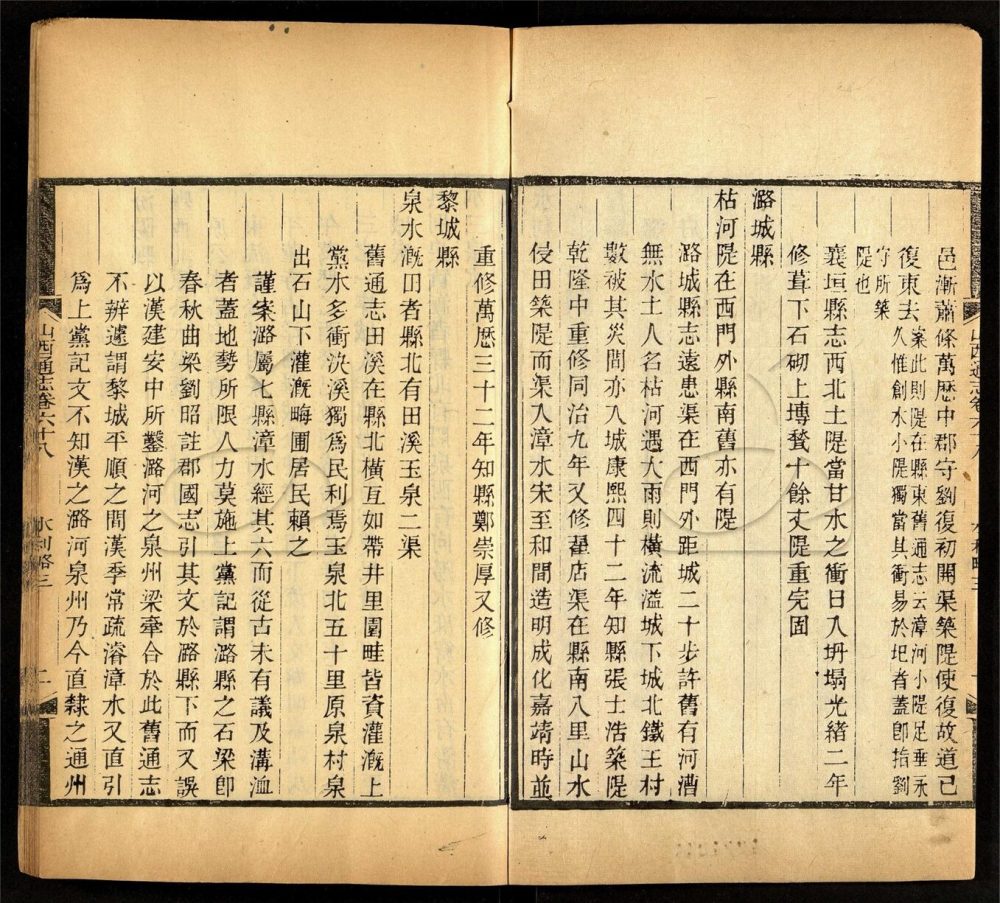 邑漸蕭條萬歷中郡守劉復初開渠築隄使復故道已
復東去案此則隄在縣東舊通志云漳河小隄足垂永
久惟創水小隄獨當其衝易於圯者蓋卽指劉
守所築
隄也
襄垣縣志西北土隄當甘水之衝日入坍塌光緒二年
修葺下石砌上塼甃十餘丈隄重完固
潞城縣
枯河隄在西門外縣南舊亦有隄
潞城縣志遠患渠在西門外距城二十步許舊有河漕
無水土人名枯河遇大雨則橫流溢城下城北鐵王村
數被其災間亦入城康熙四十二年知縣張士浩築隄
乾隆中重修同治九年又修翟店渠在縣南八里山水
侵田築隄而渠入漳水宋至和間造明成化嘉靖時並
山西通志卷六十八
水利略三
一
重修萬歷三十二年知縣鄭崇厚又修
黎城縣
泉水漑田者縣北有田溪玉泉二渠
舊通志田溪在縣北橫亙如帶井里園畦皆資灌漑上
黨水多衝決溪獨爲民利焉玉泉北五十里原泉村泉
出石山下灌漑畮圃居民賴之
謹案潞屬七縣漳水經其六而從古未有議及溝洫
者蓋地勢所限人力莫施上黨記謂潞縣之石梁卽
春秋曲梁劉昭註郡國志引其文於潞縣下而又誤
以漢建安中所鑿潞河之泉州梁牽合於此舊通志
不辨遽謂黎城平順之間漢季常疏濬漳水又直引
爲上黨記文不知漢之潞河泉州乃今直隸之通州
山西通志卷六十八
水利略三
二